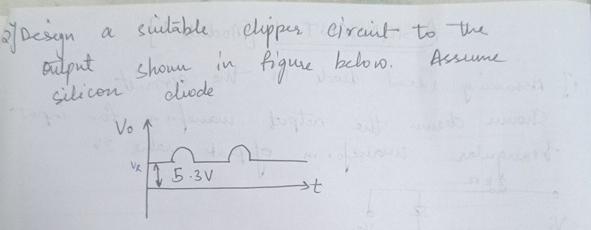 2) Design a suitable clipper circuit to the
output shown in figure below. Assume
silicon diode
Vo
VR
5.3V
t